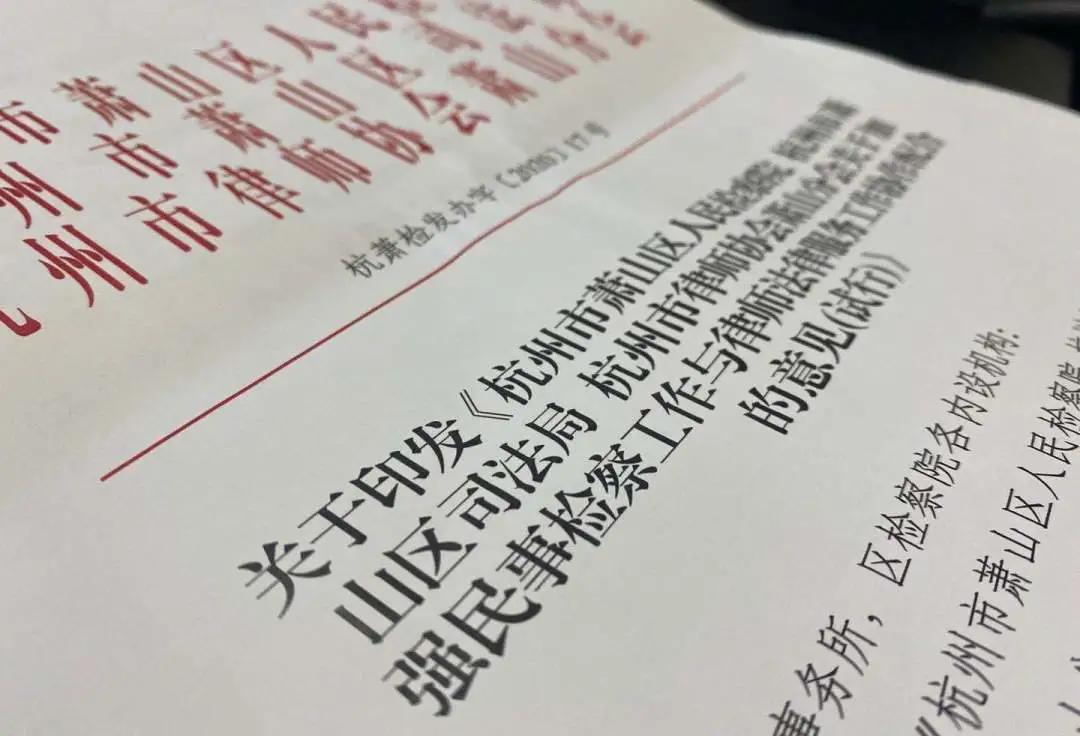 市萧山区人民
州市萧山区司法
州市律师协会萧山分会
杭萧检发办字〔2020〕17号
关于印发《杭州市萧山区人民检察院 杭州市萧
山区司法局 杭州市律师协会萧山分会关于加
强民事检察工作与律师法律服务工作协作配合
的意见(试行)》
事务所，区检察院各内设机构：
《杭州市萧山区人民检察院